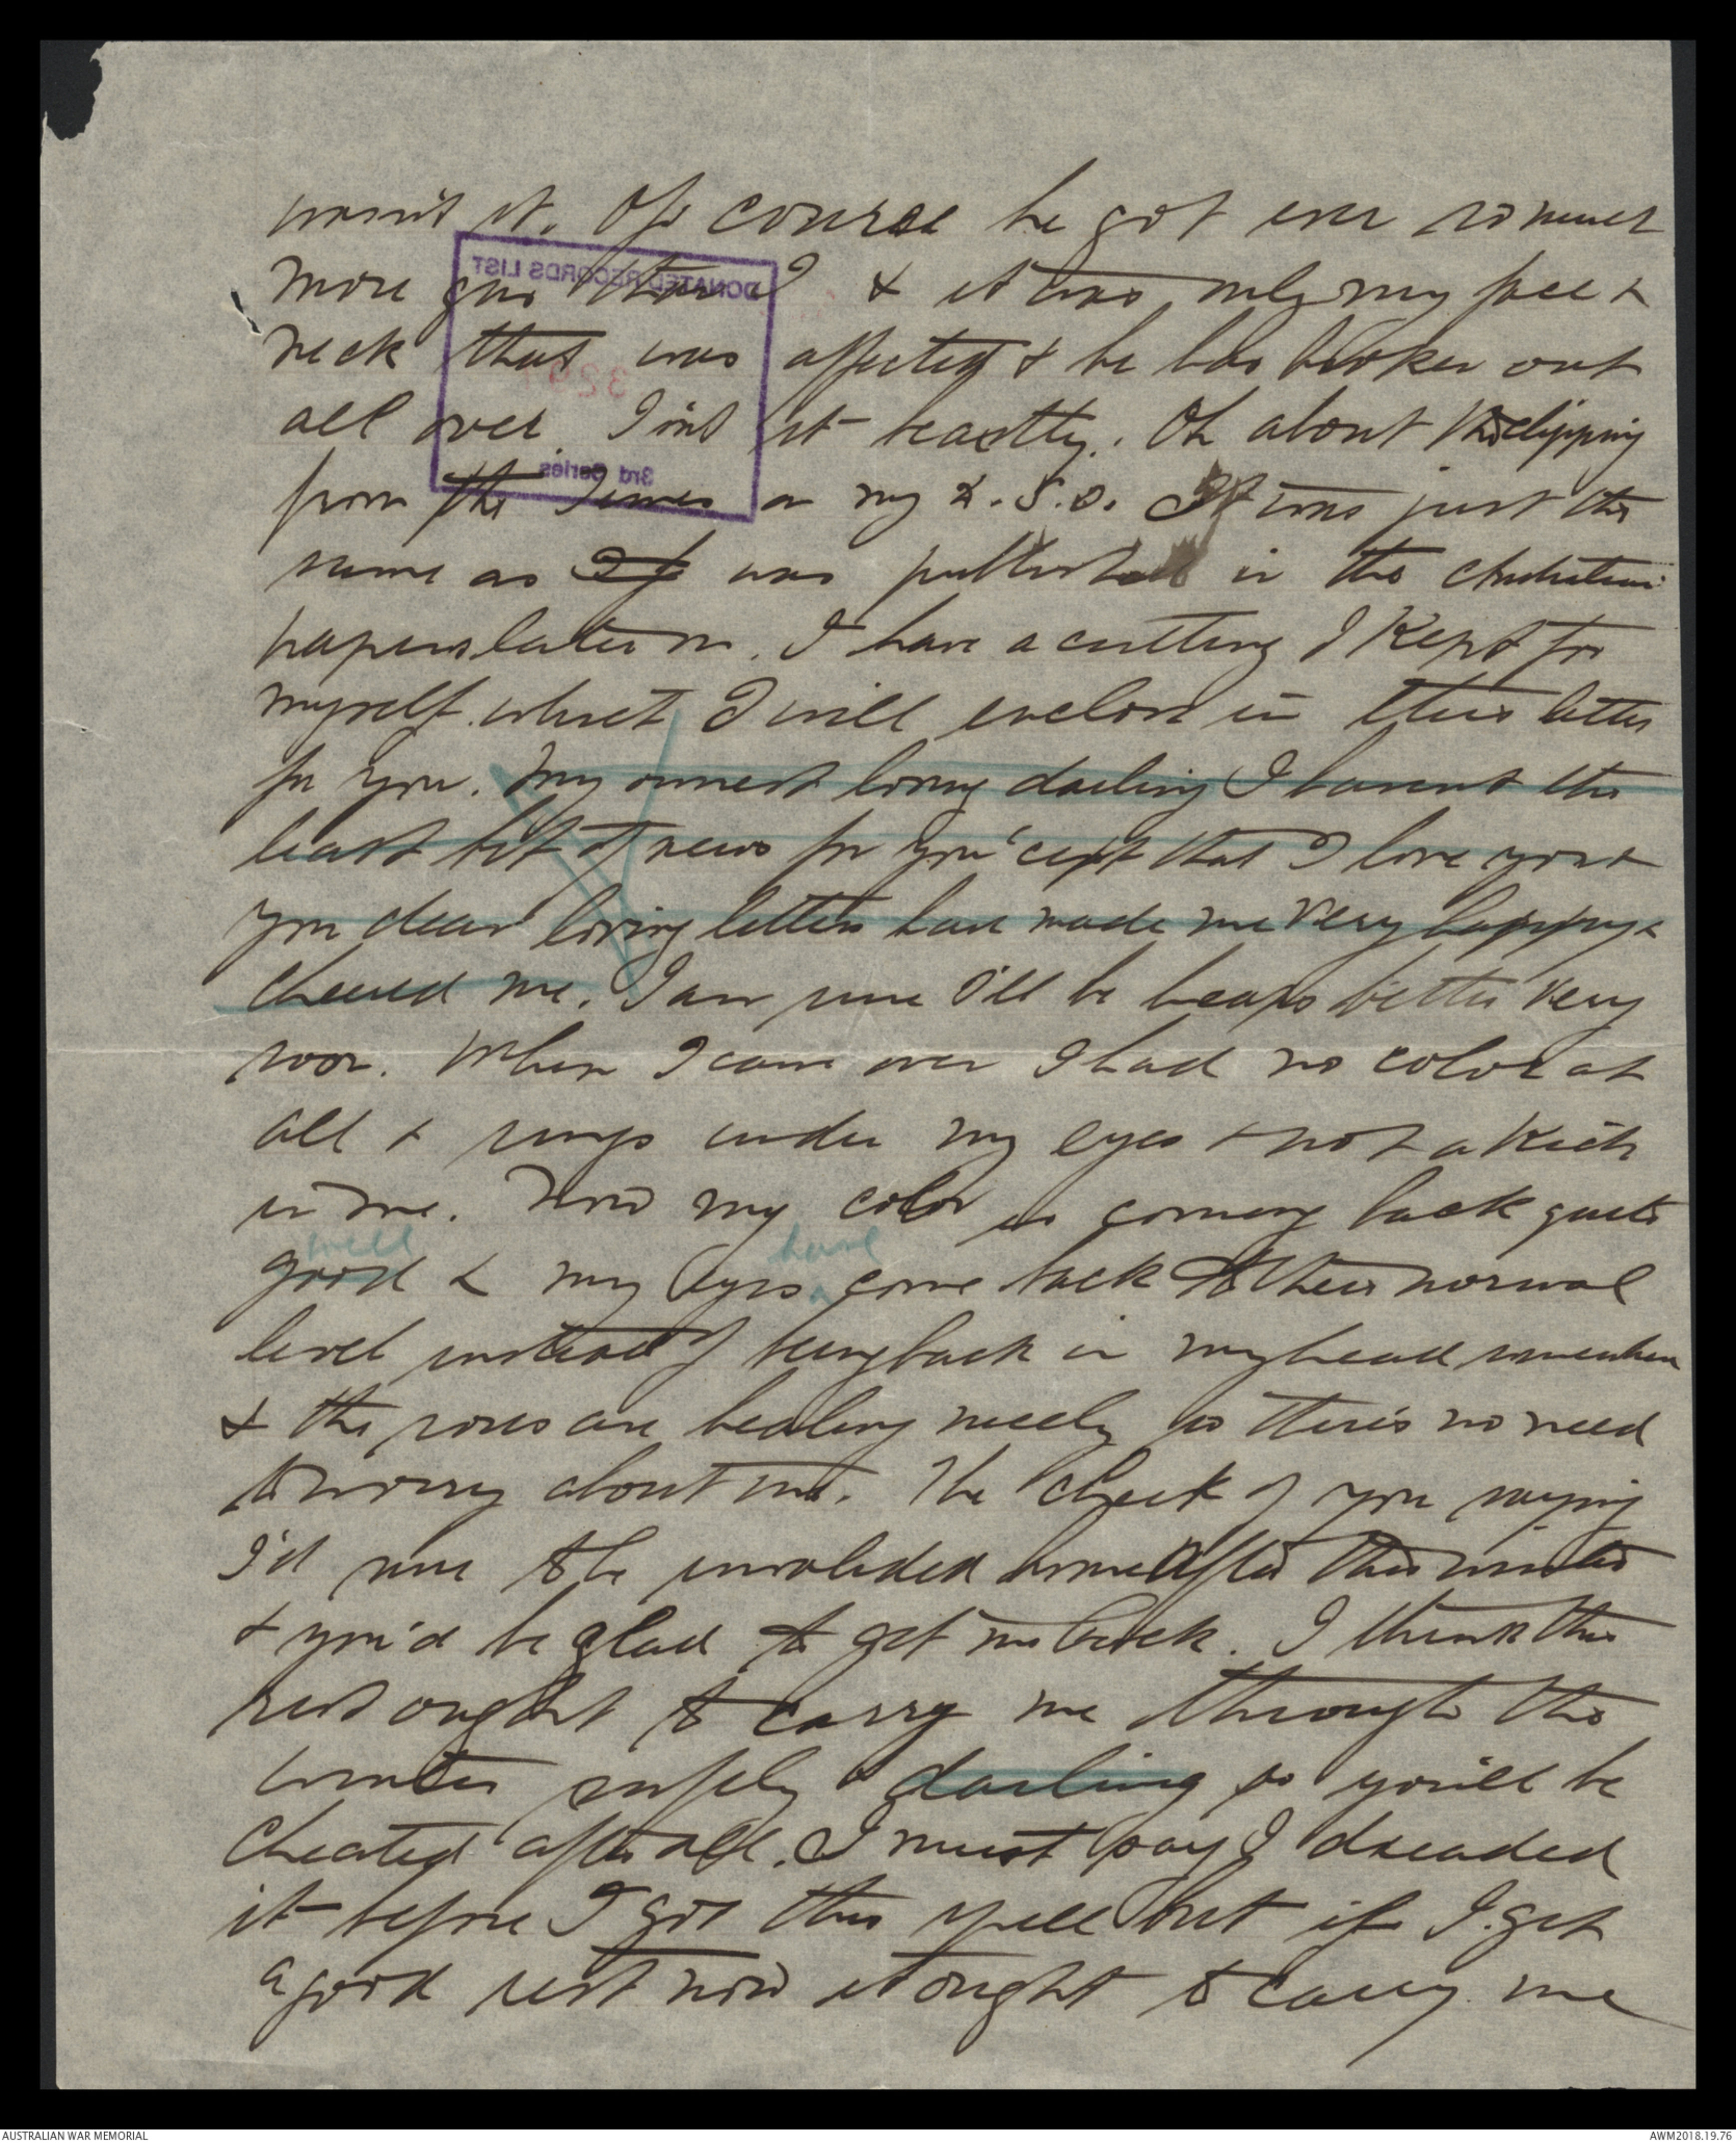 wasn't it. Of course he got ever so much
more gas than I & it was only my face &
neck that was affected & he has broken out
all over. Isn't it beastly. Oh about the clipping
from the Times on my D.S.O. It was just the
same as I was published in the Australian
papers later on. I have a cutting I kept for
myself which I will enclose in this letter
for you. My ownest loving darling I havent the
least bit of news for you 'cept that I love you &
you dear loving letters have made me very happy &
cheered me. I am sure I'll be heaps better very
soon. When I came over I had no color at
all & rings under my eyes & not a kick
in me. Now my color is coming back quite
well have
good & my eyes come back to their normal
level instead of being back in my head somewhere
& the sores are healing nicely so there's no need
to worry about me. The cheek of you saying
I'd sure to be invalided home after this winter
& you'd be glad to get me back. I think this
rest ought to carry me through the
winter safely darling so you'll be
cheated after all. I must say I dreaded
it before I got this spell but if I get
a good rest now it ought to carry me
DONATED RECORDS LIST
329
3rd Series
AUSTRALIAN WAR MEMORIAL
AWM2018.19.76